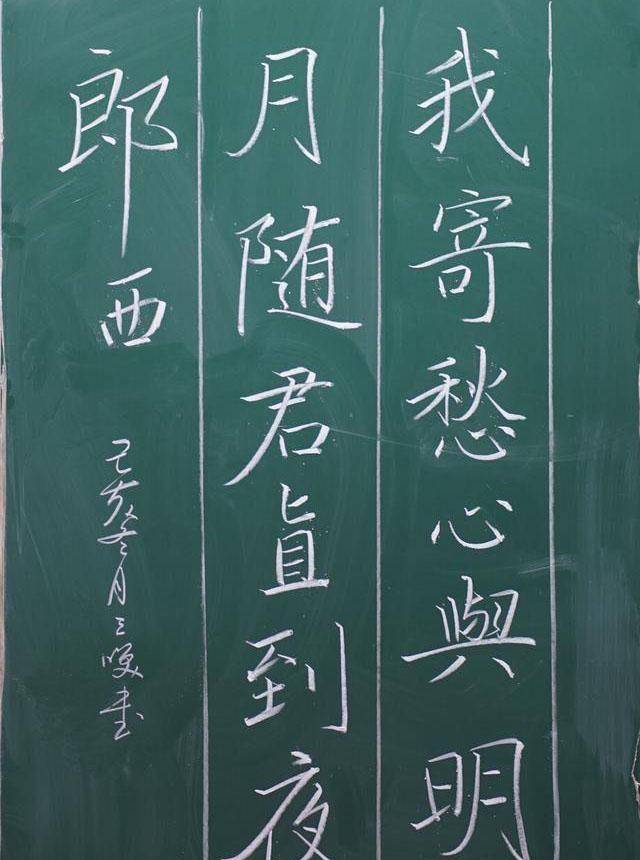 我寄愁心與明
月随君直到夜
郎西
己亥冬月三書